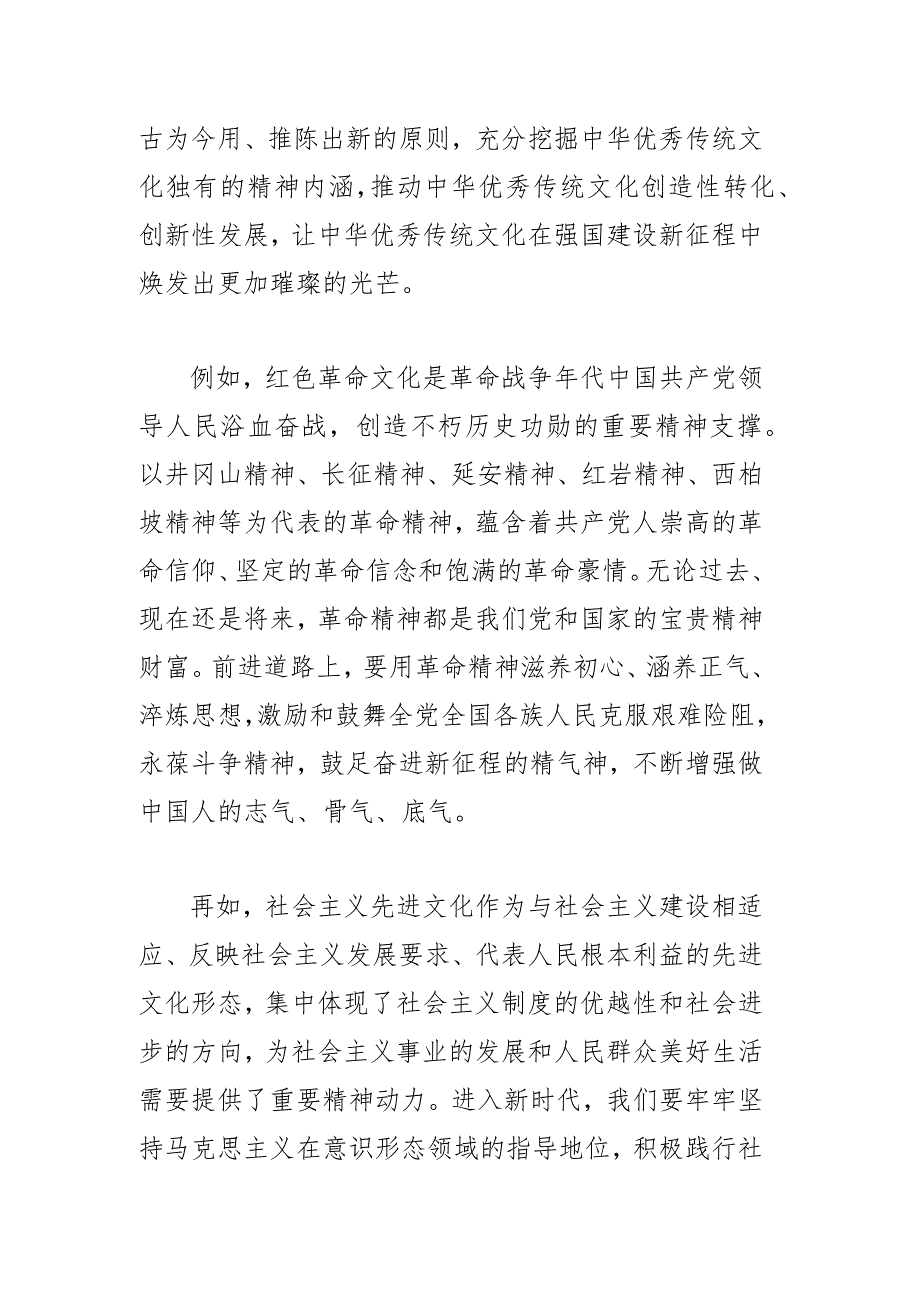 古为今用、推陈出新的原则，充分挖掘中华优秀传统文
化独有的精神内涵，推动中华优秀传统文化创造性转化、
创新性发展，让中华优秀传统文化在强国建设新征程中
焕发出更加璀璨的光芒。
例如，红色革命文化是革命战争年代中国共产党领
导人民浴血奋战，创造不朽历史功勋的重要精神支撑。
以井冈山精神、长征精神、延安精神、红岩精神、西柏
坡精神等为代表的革命精神，蕴含着共产党人崇高的革
命信仰、坚定的革命信念和饱满的革命豪情。无论过去、
现在还是将来，革命精神都是我们党和国家的宝贵精神
财富。前进道路上，要用革命精神滋养初心、涵养正气、
淬炼思想，激励和鼓舞全党全国各族人民克服艰难险阻，
永葆斗争精神，鼓足奋进新征程的精气神，不断增强做
中国人的志气、骨气、底气。
再如，社会主义先进文化作为与社会主义建设相适
应、反映社会主义发展要求、代表人民根本利益的先进
文化形态，集中体现了社会主义制度的优越性和社会进
步的方向，为社会主义事业的发展和人民群众美好生活
需要提供了重要精神动力。进入新时代，我们要牢牢坚
持马克思主义在意识形态领域的指导地位，积极践行社